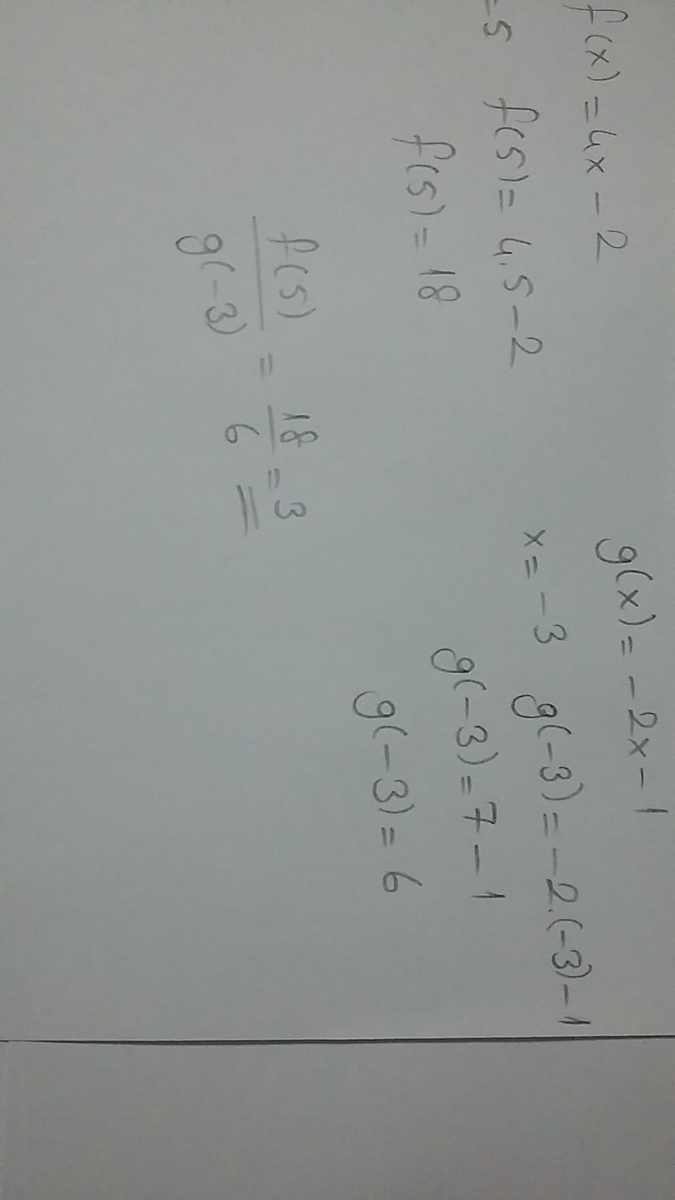 f(x) = 4x - 2
=5 f(5) = 4.5 - 2
f(5) = 18
g(x) = -2x - 1
x = -3 g(-3) = -2.(-3) - 1
g(-3) = 7 - 1
g(-3) = 6
f(5)/g(-3) = 18/6 = 3